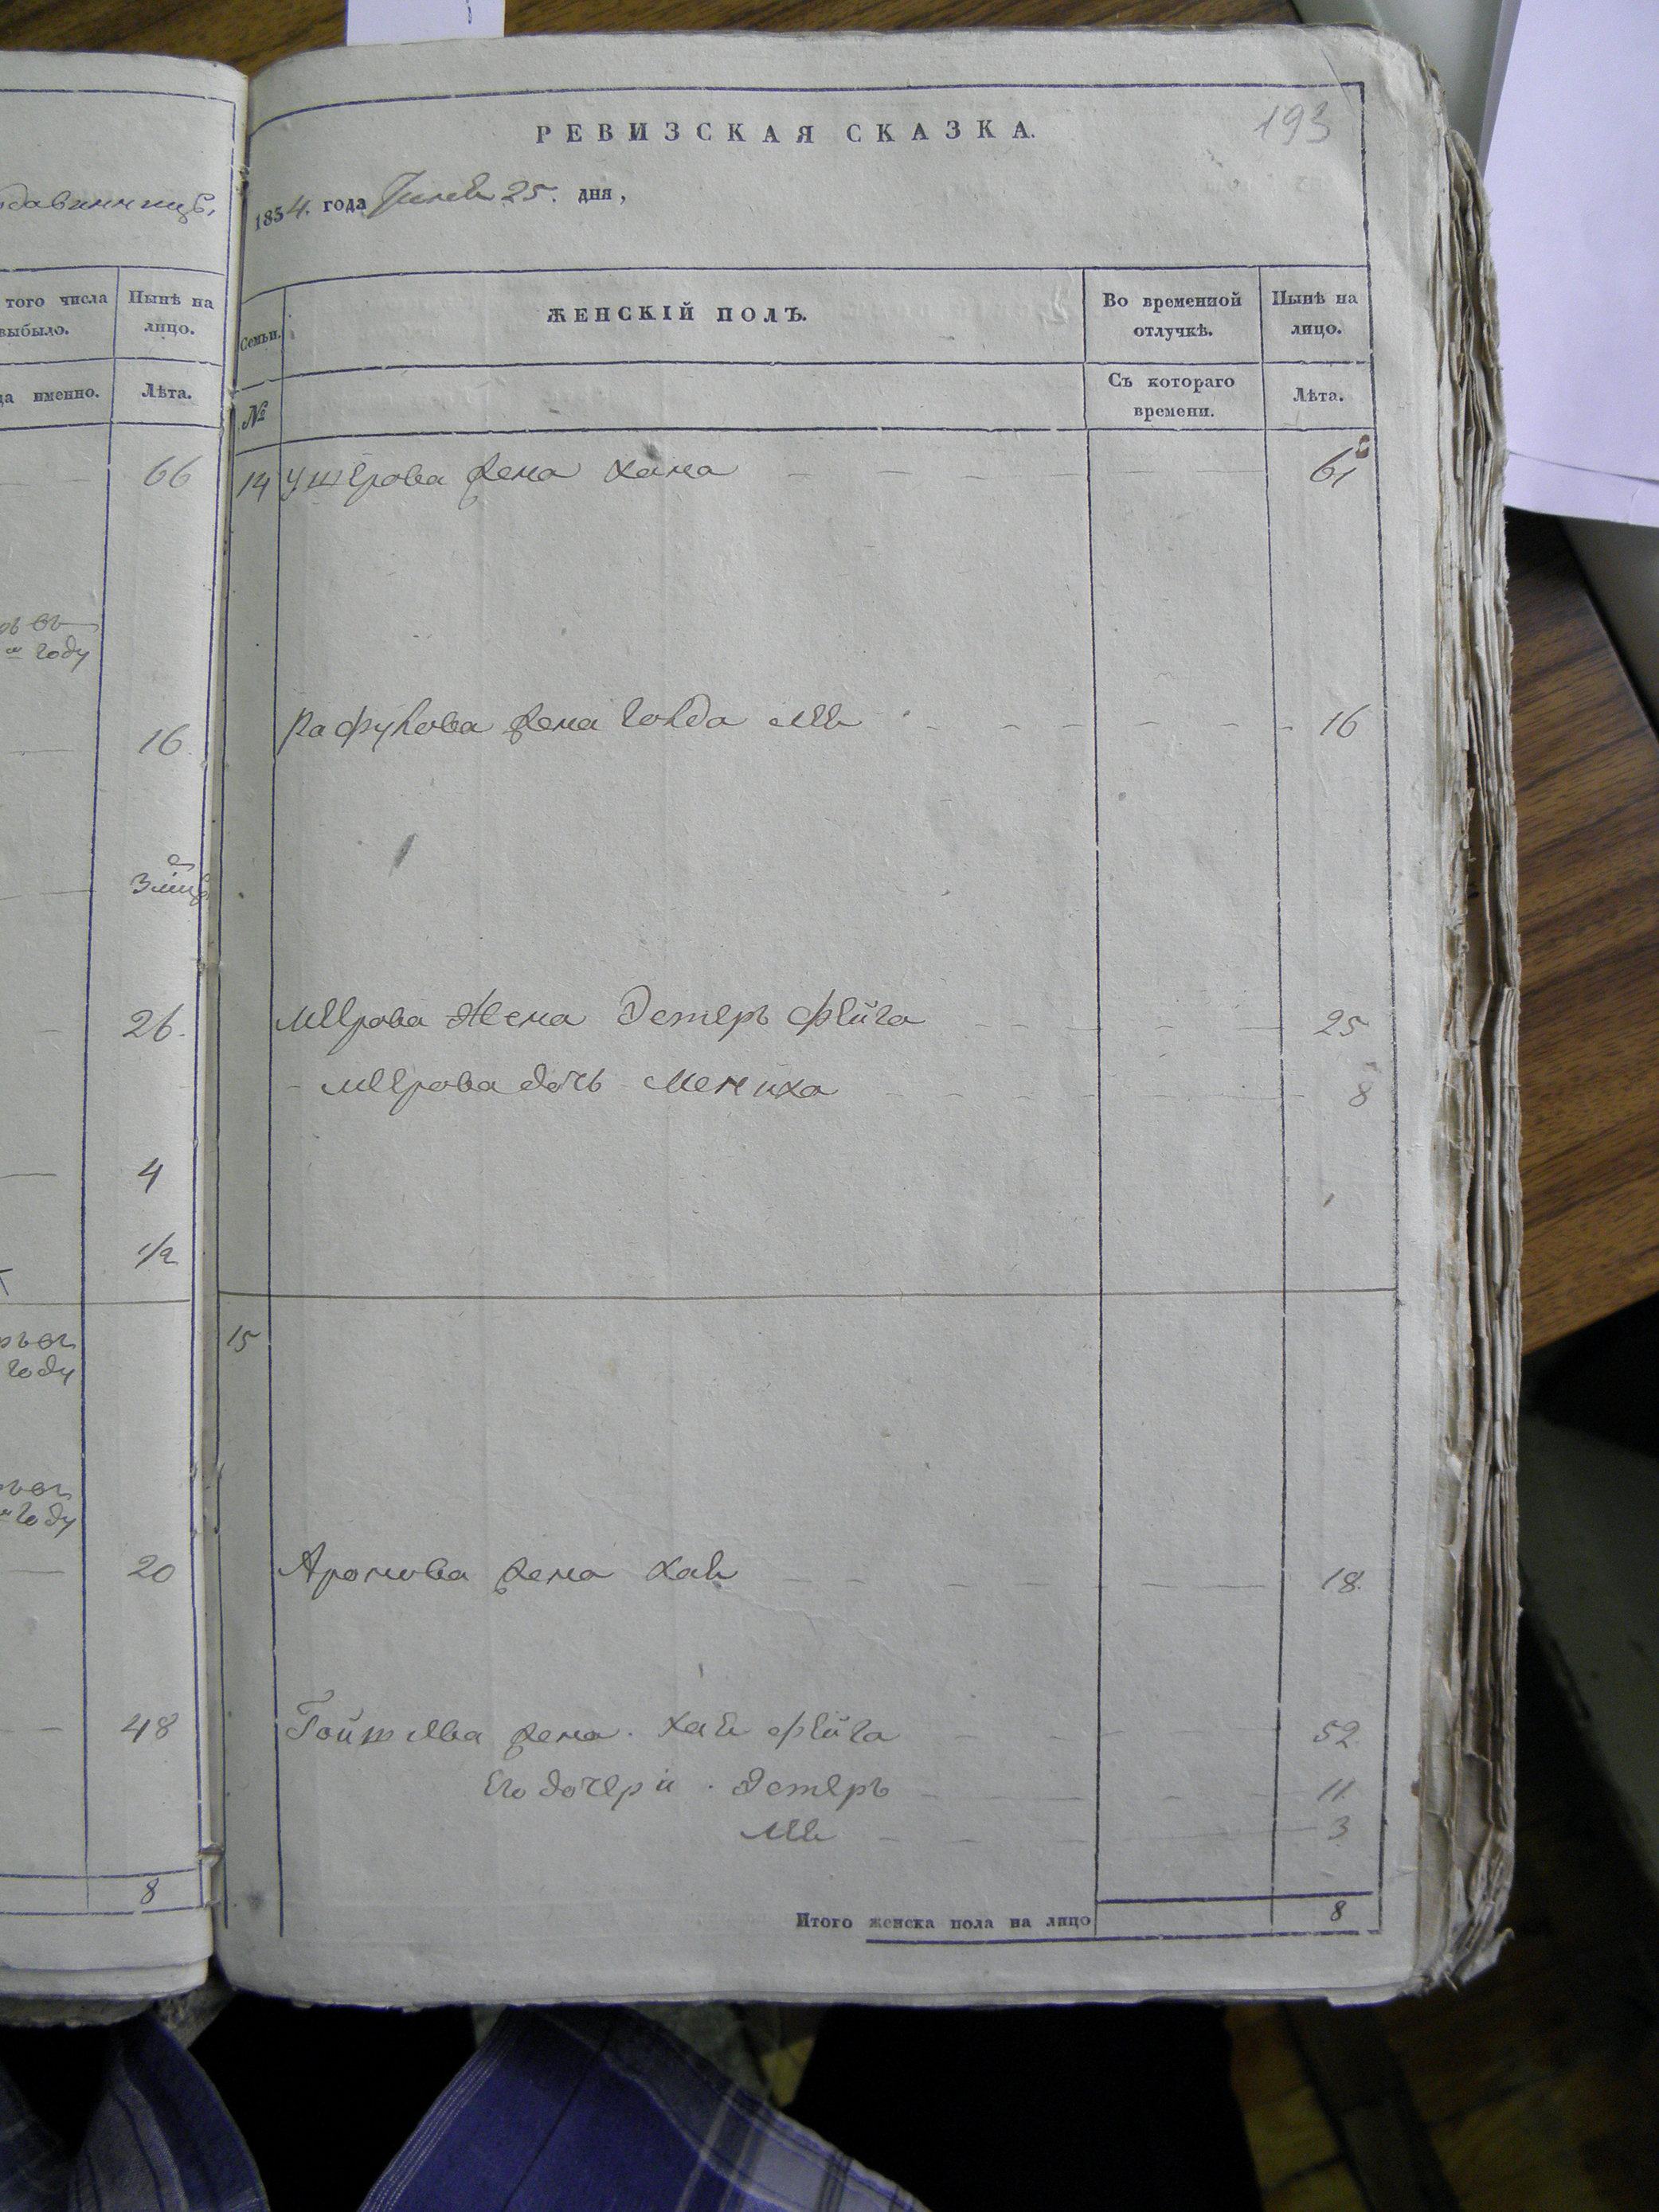 давинницѣ,
того числа
Нынѣ на
выбыло.
лицо.
да именно.
Лѣта.
66
году
16.
3
26.
4
1/2
году
году
20
48
8
193
РЕВИЗСКАЯ СКАЗКА.
1854. года Іюня 25. дня,
Семьи.
ЖЕНСКІЙ ПОЛЪ.
Во временной отлучкѣ.
Нынѣ на лицо.
№
Съ котораго времени.
Лѣта.
14 Ушерова жена Хана 61
жена Голда 16
Меерова Жена Эстеръ Фейга 25
Меерова дочь Мениха 8
15
Аронова жена Хая 18.
жена. Хая Фейга 52.
Его дочери. Эстеръ 11
3
Итого женска пола на лицо 8